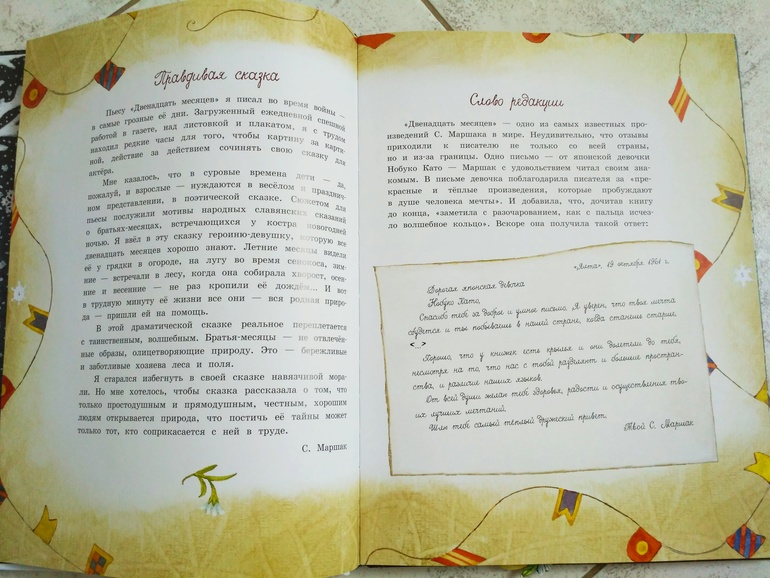 Правдивая сказка
Пьесу «Двенадцать месяцев» я писал во время войны —
в самые грозные её дни. Загруженный ежедневной спешной
работой в газете, над листовкой и плакатом, я с трудом
находил редкие часы для того, чтобы картину за карти-
ной, действие за действием сочинять свою сказку для
актёра.
Мне казалось, что в суровые времена дети — да,
пожалуй, и взрослые — нуждаются в весёлом и празднич-
ном представлении, в поэтической сказке. Сюжетом для
пьесы послужили мотивы народных славянских сказаний
о братьях-месяцах, встречающихся у костра новогодней
ночью. Я ввёл в эту сказку героиню-девушку, которую все
двенадцать месяцев хорошо знают. Летние месяцы видели
её у грядки в огороде, на лугу во время сенокоса, зим-
ние — встречали в лесу, когда она собирала хворост, осен-
ние и весенние — не раз кропили её дождём... И вот
в трудную минуту её жизни все они — вся родная приро-
да — пришли ей на помощь.
В этой драматической сказке реальное переплетается
с таинственным, волшебным. Братья-месяцы — не отвлечён-
ные образы, олицетворяющие природу. Это — бережливые
и заботливые хозяева леса и поля.
Я старался избегнуть в своей сказке навязчивой мора-
ли. Но мне хотелось, чтобы сказка рассказала о том, что
только простодушным и прямодушным, честным, хорошим
людям открывается природа, что постичь её тайны может
только тот, кто соприкасается с ней в труде.
С. Маршак
Слово редакции
«Двенадцать месяцев» — одно из самых известных про-
изведений С. Маршака в мире. Неудивительно, что отзывы
приходили к писателю не только со всей страны,
но и из-за границы. Одно письмо — от японской девочки
Нобуко Като — Маршак с удовольствием читал своим зна-
комым. В письме девочка поблагодарила писателя за «пре-
красные и тёплые произведения, которые пробуждают
в душе человека мечты». И добавила, что, дочитав книгу
до конца, «заметила с разочарованием, как с пальца исчез-
ло волшебное кольцо». Вскоре она получила такой ответ:
«Ялта», 19 октября 1961 г.
Дорогая японская девочка
Нобуко Като,
Спасибо тебе за доброе и умное письмо. Я уверен, что твоя мечта
сбудется и ты побываешь в нашей стране, когда станешь старше.
<>
Хорошо, что у книжек есть крылья и они долетели до тебя,
несмотря на то, что нас с тобой разделяют и большие простран-
ства, и различия наших языков.
От всей души желаю тебе здоровья, радости и осуществления тво-
их лучших мечтаний.
Шлю тебе самый теплый дружеский привет.
Твой С. Маршак